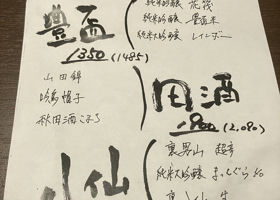 豊盃
1350(1485)
山田錦
吟烏帽子
秋田酒こまち
純米吟醸 花筏
純米吟醸 豊盃米
純米大吟醸 レインボー
田酒
1900(2,090)
裏男山 超辛
純米大吟醸
八仙
裏